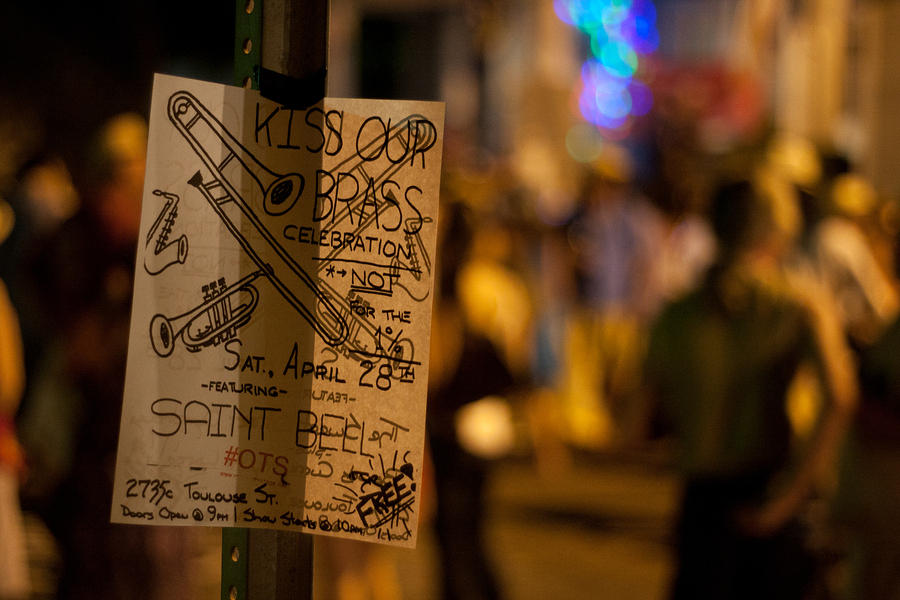 KISS OUR
BRASS
CELEBRATION
*→ NOT
FOR THE
1%
SAT., APRIL 28TH
-FEATURING-
SAINT BELL
#OTS
FREE!
2735c TOULOUSE ST.
DOORS OPEN @ 9PM | SHOW STARTS @ 10PM